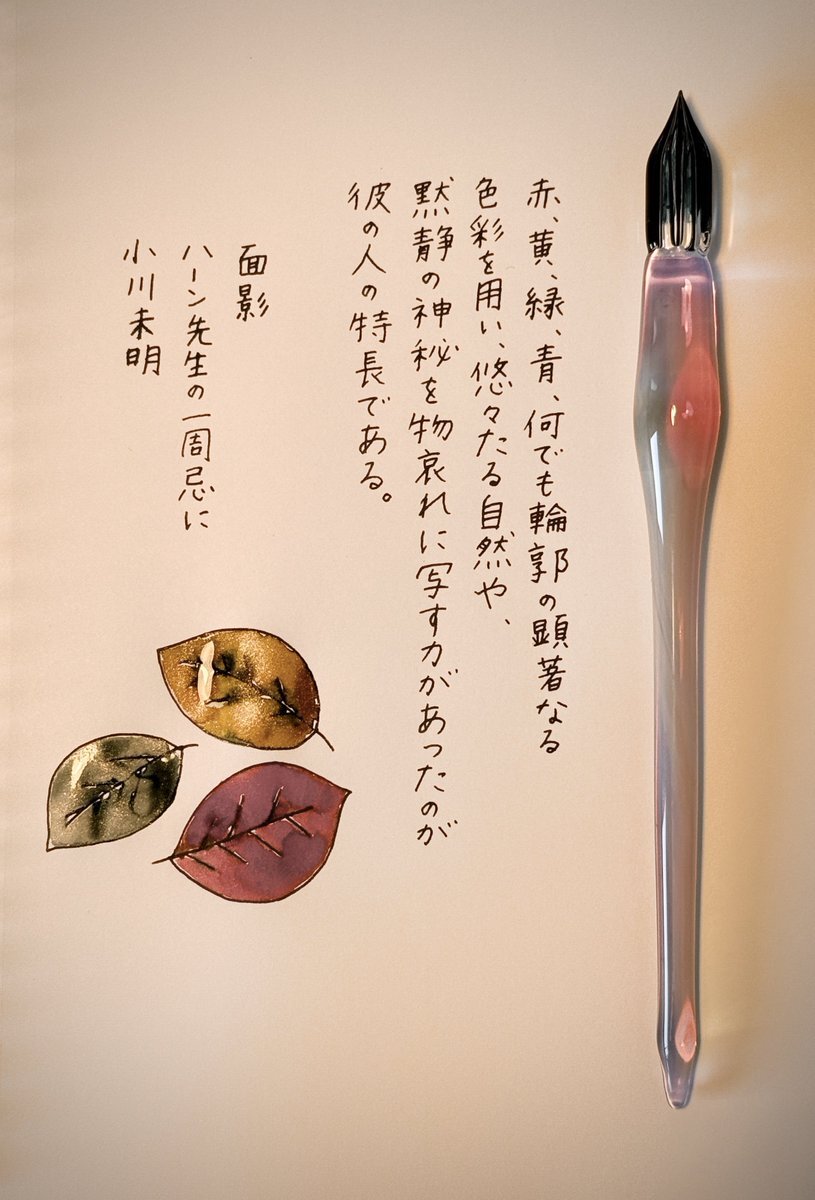 赤、黄、緑、青、何でも輪郭の顕著なる
色彩を用い、悠々たる自然や、
黙静の神秘を物哀れに写す力があったのが
彼の人の特長である。
面影
ハーン先生の一周忌に
小川未明